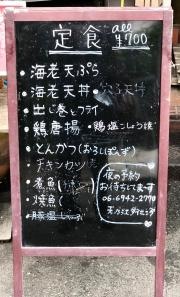 定食 all ¥700
・海老天ぷら
・海老天丼
・出し巻とフライ
・鶏唐揚 ・鶏塩こしょう焼
・とんかつ(おろしぽんず)
チキンカツ
・煮魚(
・焼魚(
夜の予約
お待ちしてます
06-6942-2770